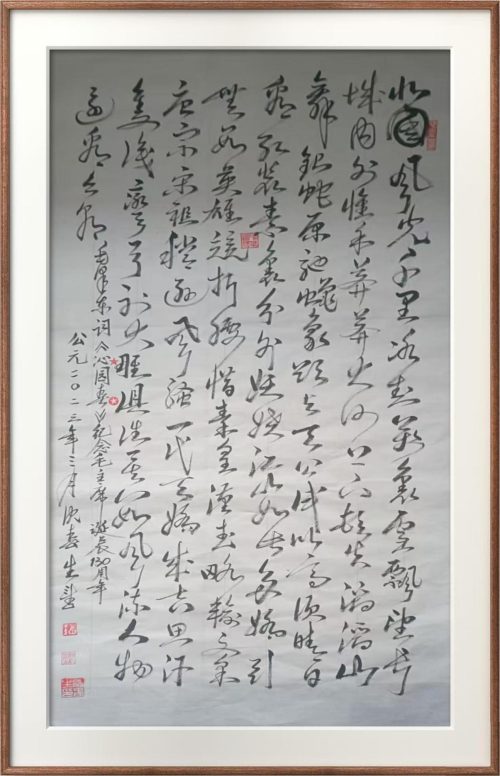 北國風光千里冰封萬裏雪飄望长
城内外惟余莽莽大河上下顿失滔滔山
舞銀蛇原馳蠟象欲与天公试比高须晴日
看红装素裹分外妖娆江山如此多娇引
無数英雄競折腰惜秦皇漢武略輸文采
唐宗宋祖稍逊風騷一代天骄成吉思汗
只识弯弓射大雕俱往矣数風流人物
还看今朝
毛泽东词沁园春雪纪念毛主席诞辰130周年
公元二〇二三年三月 春生書